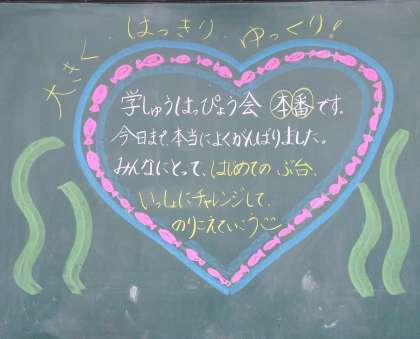 大きく、はっきり、ゆっくり！
学しゅうはっぴょう会 本番です。
今日まで、本当によくがんばりました。
みんなにとって、はじめてのぶ台、
いっしょにチャレンジして、
のりこえていこう